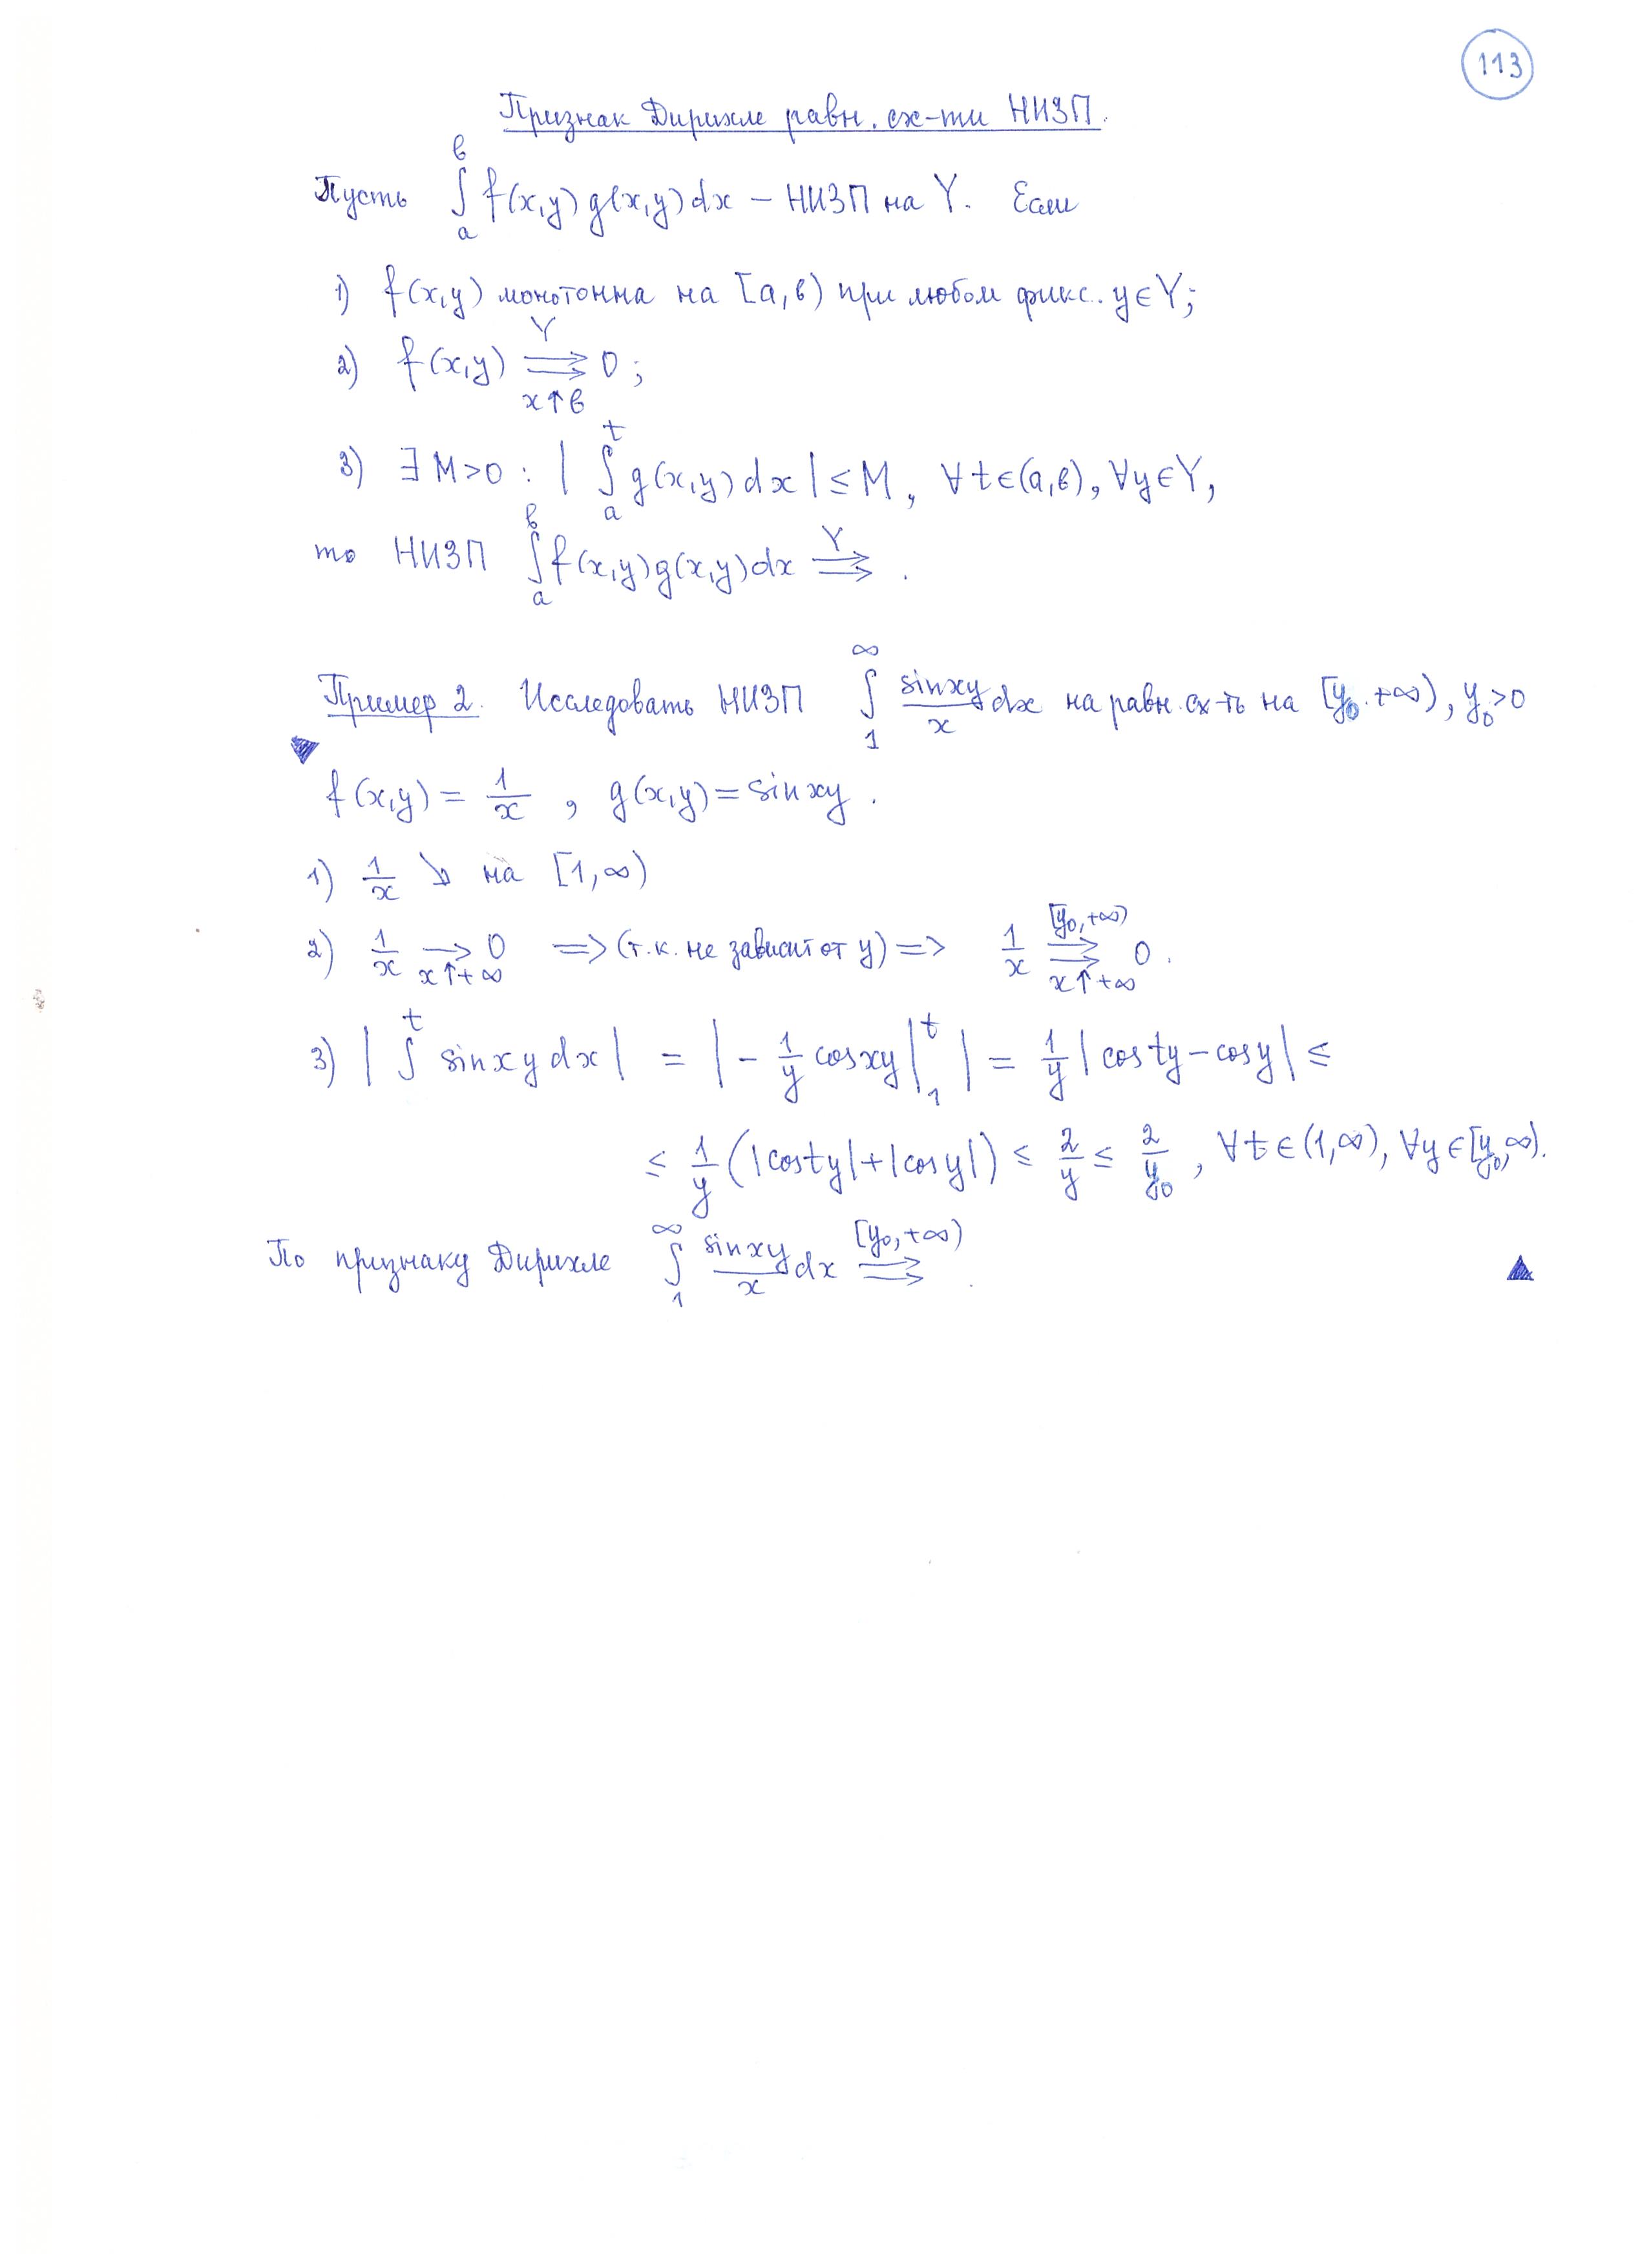 113
Признак Дирихле равн. сх-ти НИЗП.
Пусть ∫_a^b f(x,y) g(x,y) dx – НИЗП на Y. Если
1) f(x,y) монотонна на [a,b) при любом фикс. y∈Y;
2) f(x,y) ⇉^Y_{x↑b} 0 ;
3) ∃ M>0 : | ∫_a^t g(x,y) dx | ≤ M, ∀t∈(a,b), ∀y∈Y,
то НИЗП ∫_a^b f(x,y)g(x,y)dx ⇉^Y .
Пример 2. Исследовать НИЗП ∫_1^∞ \frac{sin xy}{x} dx на равн. сх-ть на [y_0. +∞), y_0>0
▼
f(x,y) = \frac{1}{x} , g(x,y) = sin xy .
1) \frac{1}{x} ↘ на [1,∞)
2) \frac{1}{x} →_{x↑+∞} 0 => (т.к. не зависит от y) => \frac{1}{x} ⇉^{[y_0,+∞)}_{x↑+∞} 0 .
3) | ∫^t sin xy dx | = | - \frac{1}{y} cos xy |_1^t | = \frac{1}{y} | cos ty – cos y | ≤
≤ \frac{1}{y} (|cos ty| + |cos y|) ≤ \frac{2}{y} ≤ \frac{2}{y_0} , ∀t∈(1,∞), ∀y∈[y_0,∞).
По признаку Дирихле ∫_1^∞ \frac{sin xy}{x} dx ⇉^{[y_0,+∞)} . ▲